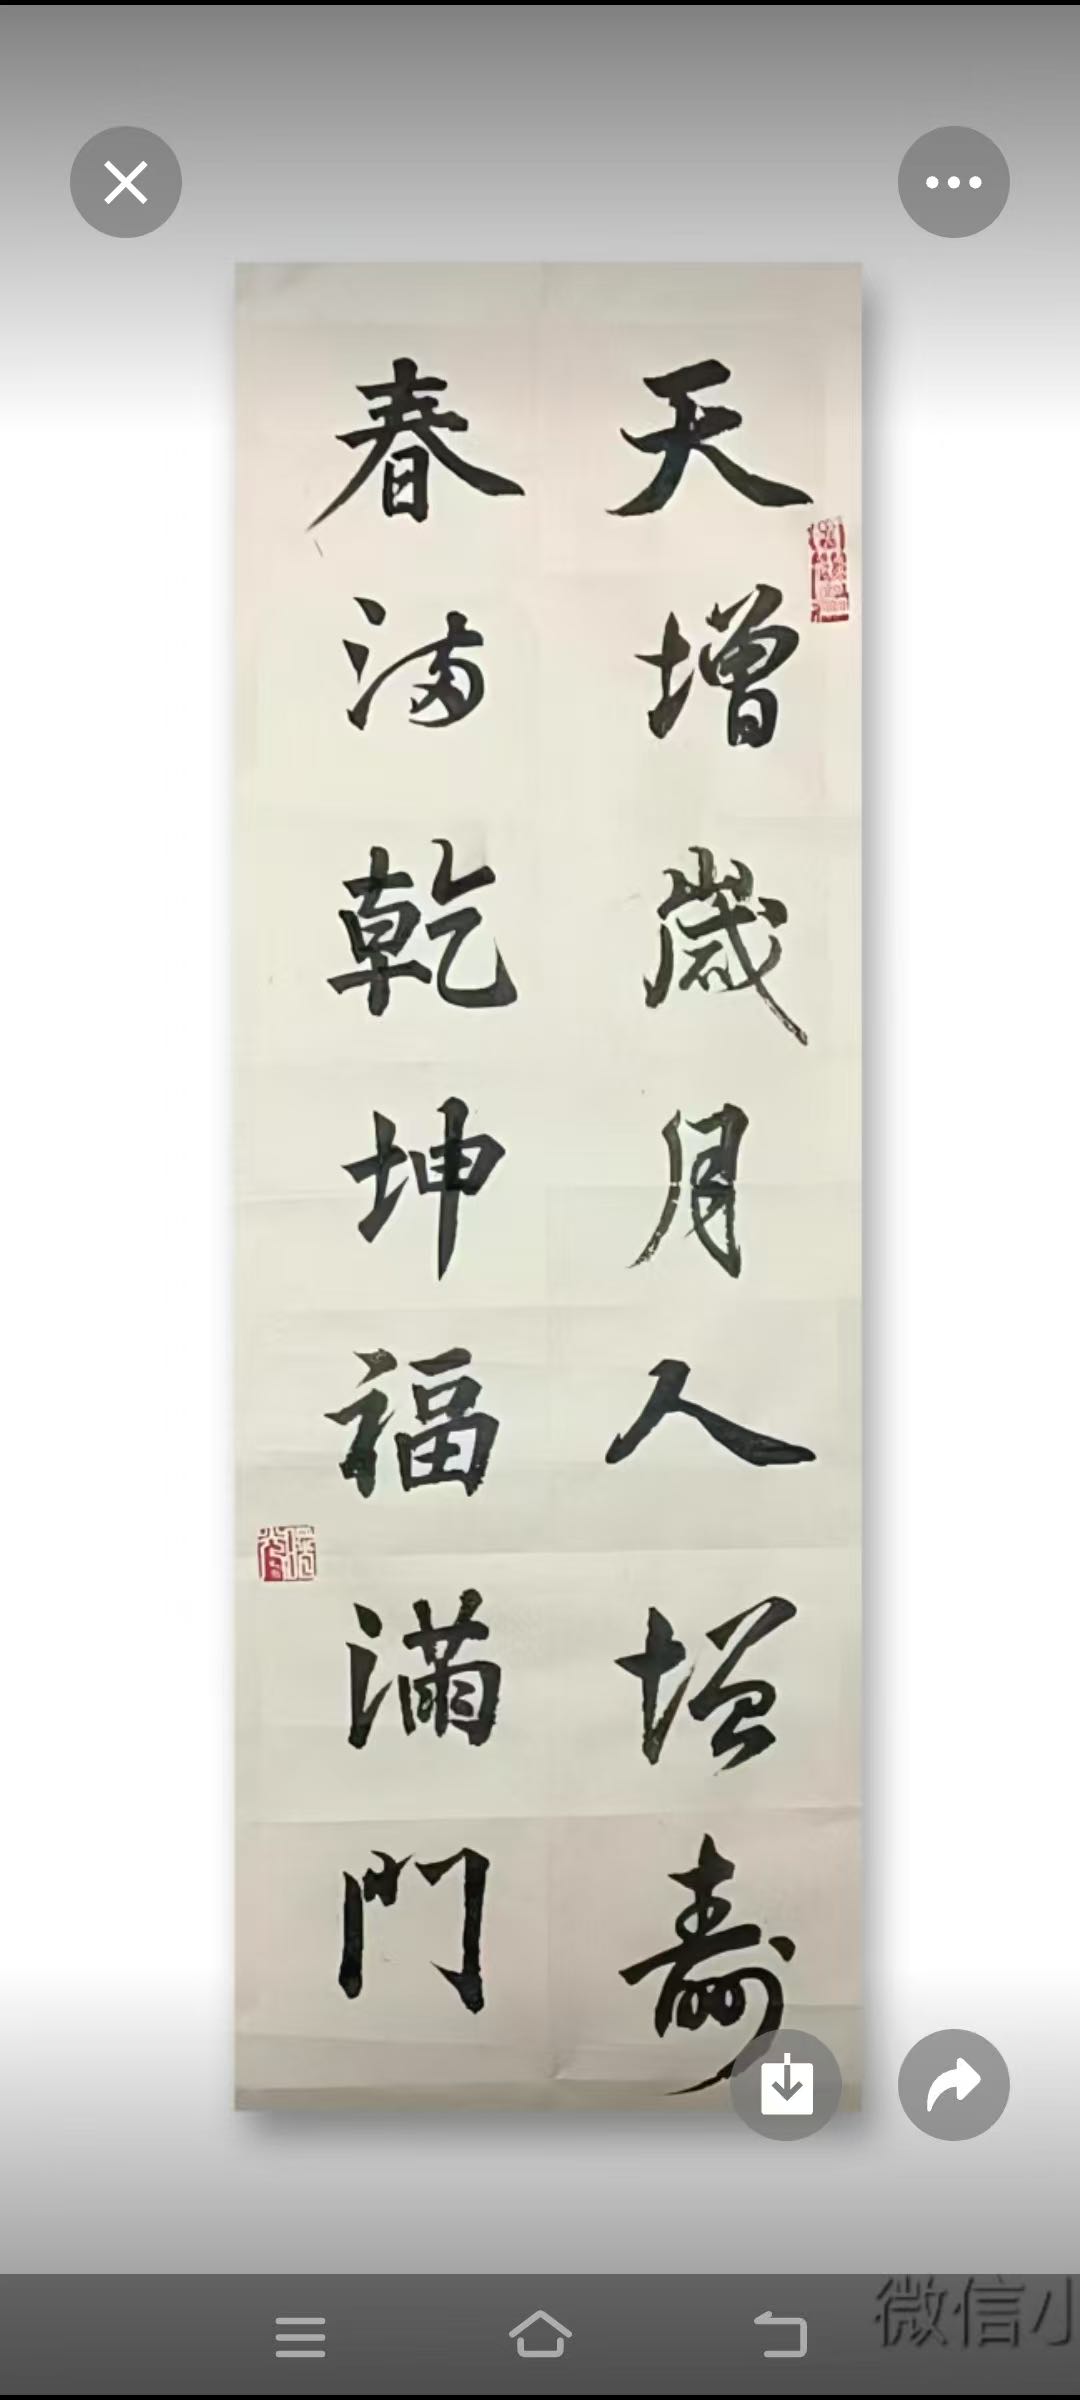 天增歲月人增壽
春满乾坤福滿門
微信小